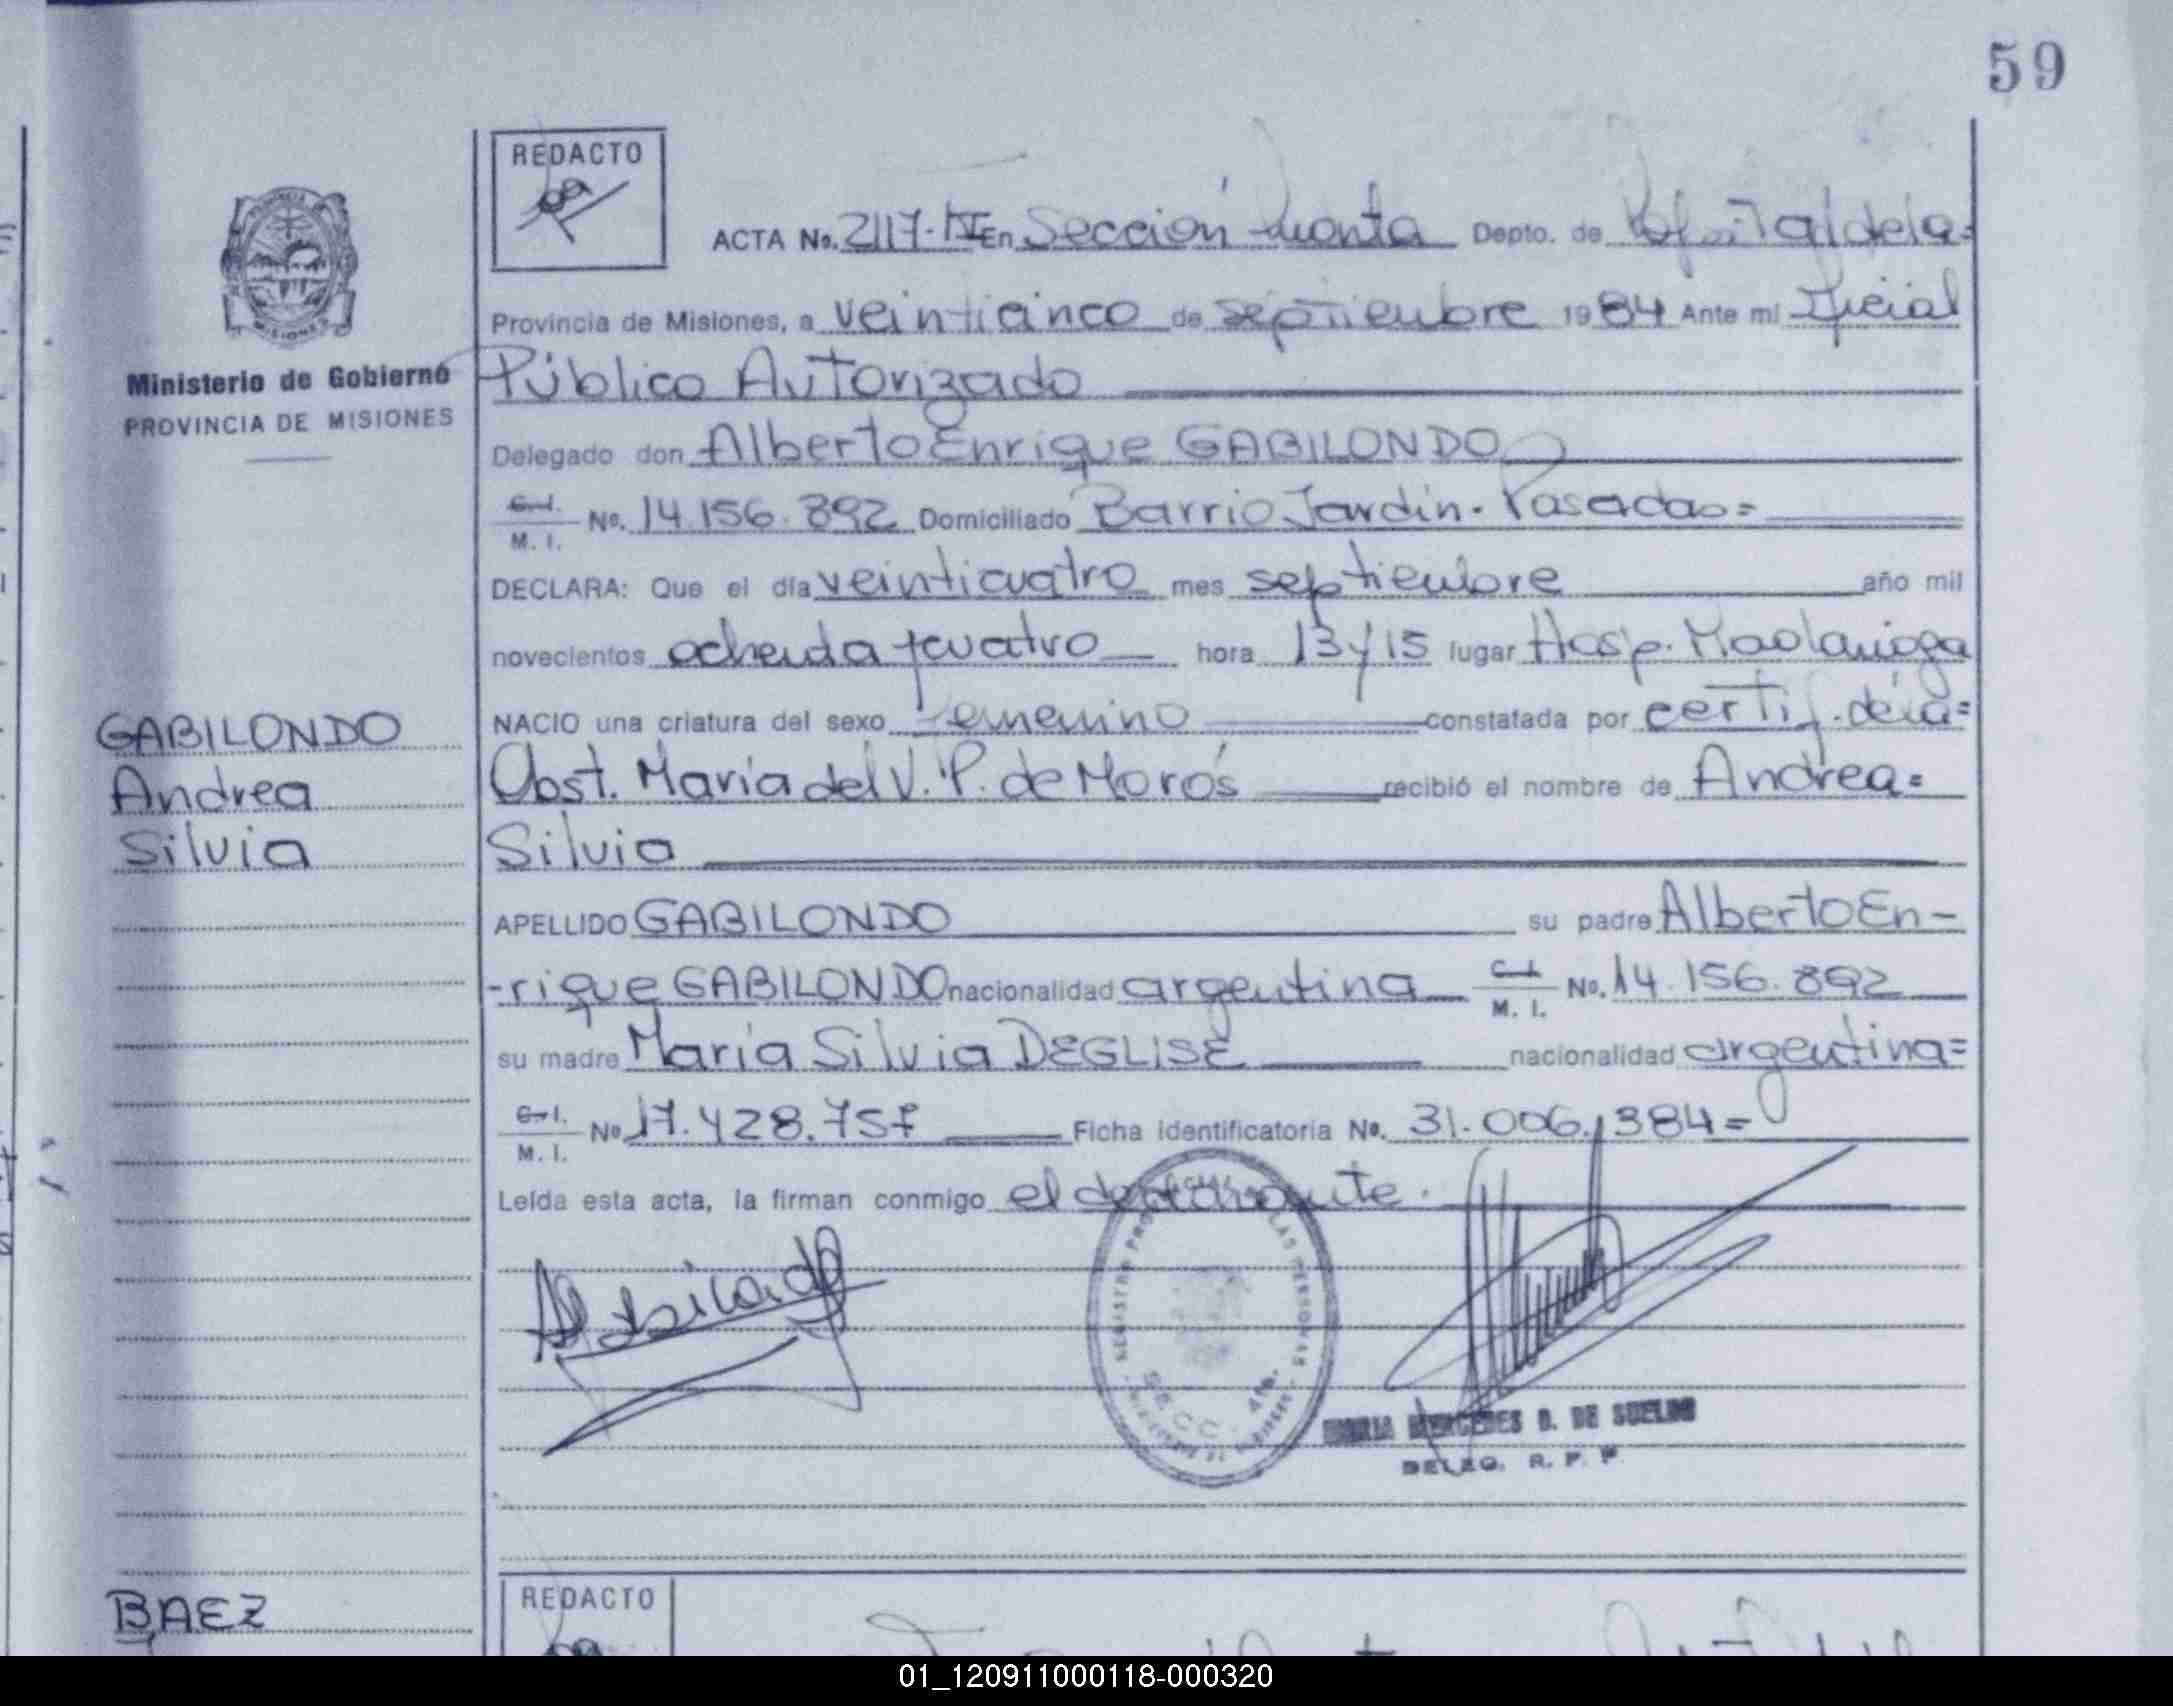 59
REDACTO
ACTA No. 2117-IV En Sección Cuarta Depto. de
Provincia de Misiones, a veinticinco de septiembre 1984 Ante mi Oficial
Ministerio de Gobierno
Público Autorizado
PROVINCIA DE MISIONES
Delegado don Alberto Enrique GABILONDO
C.I.
M. I. No. 14.156.892 Domiciliado Barrio Jardín. Posadas=
DECLARA: Que el día veinticuatro mes septiembre año mil
novecientos ochenta y cuatro hora 13 y 15 lugar Hosp. Madariaga
GABILONDO
NACIO una criatura del sexo Femenino constatada por certif. de la=
Andrea
Obst. María del V. P. de Morós recibió el nombre de Andrea=
Silvia
Silvia
APELLIDO GABILONDO su padre Alberto En-
-rique GABILONDO nacionalidad argentina C.I. M. I. No. 14.156.892
su madre María Silvia DEGLISE nacionalidad argentina=
C.I. M. I. No 17.428.757 Ficha identificatoria No. 31.006.384=
Leída esta acta, la firman conmigo el declarante.
SECC. 4ta.
MERCEDES B. DE SUELDO
DELEG. R. P. P.
REDACTO
BAEZ
01_120911000118-000320